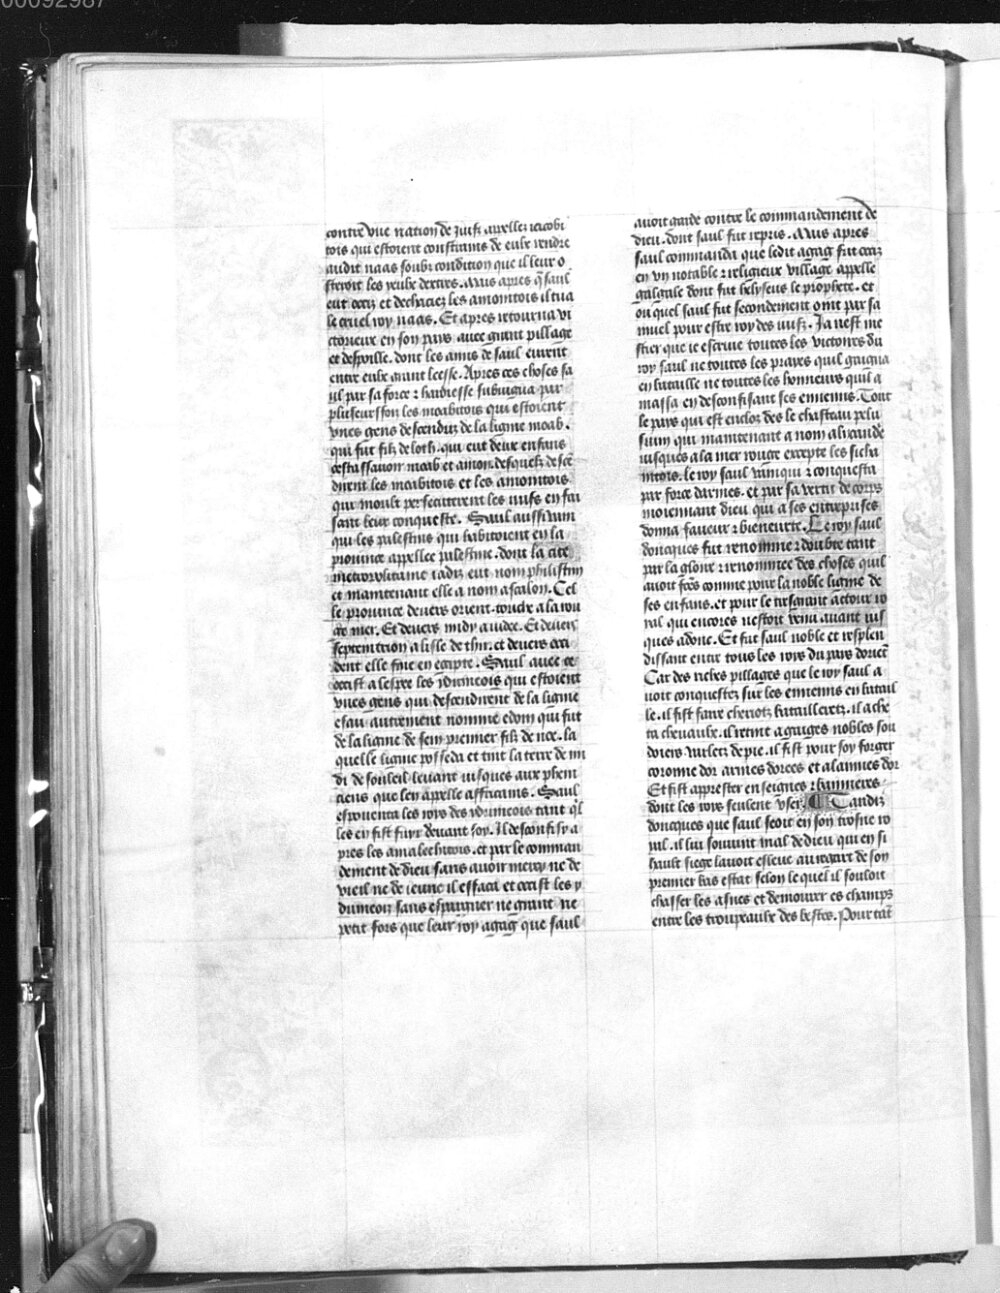 00092987
contre une nation de Juifz appellez iacobi
tois qui estoient constrains de eulx rendre
audit naas soubz condition que il leur o
steroit les yeulx dextres. Mais apres q̃ saul
eut occiz et dechaciez les amonitois il tua
le cruel roy naas. Et apres retourna vi
ctorieux en son pays auec grant pillage
et despoille. dont les amis de saul eurent
entre eulx grant leesse. Apres ces choses sa
ul par sa force ⁊ hardiesse subiuga par
pluseurs foiz les moabitois qui estoient
vnes gens descenduz de la ligne moab.
qui fut filz de loth. qui eut deux enfans
cestassauoir moab et amon. desquelz desce
dirent les moabitois et les amonitois.
qui moult persecuterent les iuifs en fai
sant leur conqueste. Saul aussi vain
qui les palestins qui habitoient en la
prouince appellee palestine. dont la cite
metropolitaine iadiz eut nom philistim
et maintenant elle a nom ascalon. Cel
le prouince deuers orient. touche a la rou
ge mer. Et deuers midy a iudee. Et deuers
septentrion a lisle de thir. et deuers occi
dent elle fine en egipte. Saul auec ce
occist a lespee les ydumeois qui estoient
vnes gens qui descendirent de la ligne
esau autrement nomme edom qui fut
de la ligne de sem premier filz de noe. la
quelle ligne posseda et tint la terre de mi
di de souleil leuant iusques aux pheni
ciens que len appelle affricains. Saul
espouenta les roys des ydumeois tant q̃l
les en fist fuyr deuant soy. Il desconfist a
pres les amalechitois. et par le comman
dement de dieu sans auoir mercy ne de
vieil ne de ieune il effaca et occist les y
dumeois sans espargner ne grant ne
petit fors que leur roy agag que saul
auoit garde contre le commandement de
dieu. dont saul fut repris. Mais apres
saul commanda que ledit agag fut occiz
en vn notable ⁊ religieux village appelle
galgale dont fut helyseus le prophete. et
ou quel saul fut secondement oint par sa
muel pour estre roy des iuifz. Ja nest me
stier que ie escriue toutes les victoires du
roy saul ne toutes les prayes quil gaigna
en bataille ne toutes les honneurs quil a
massa en desconfisant ses ennemis. Tout
le pays qui est encloz des le chasteau pelu
sium qui maintenant a nom alixandre
iusques a la mer rouge excepte les sicha
mitois. le roy saul vainqui ⁊ conquesta
par force darmes. et par sa vertu de corps
moiennant dieu qui a ses entreprises
donna faueur ⁊ bieneurte. Le roy saul
doncques fut renomme ⁊ doubte tant
par la gloire ⁊ renommee des choses quil
auoit fc̃es comme pour la noble ligne de
ses enfans. et pour le tresgrant actour ro
ial qui encores nestoit venu auant ius
ques adonc. Et fut saul noble et resplen
dissant entre tous les roys du pays dorient
Car des riches pillages que le roy saul a
uoit conquestez sur les ennemis en batail
le. il fist faire chariotz bataillerez. il ache
ta cheuaulx. il retint a gaiges nobles sou
doiers varletz de pie. il fist pour soy forger
coronne dor armes dorees et alannies dor
Et fist apprester enseignes ⁊ bannieres
dont les roys seulent vser. ¶ Tandiz
doncques que saul seoit en son trosne ro
ial. il lui souuint mal de dieu qui en si
hault siege lauoit esleue au regart de son
premier bas estat selon le quel il souloit
chasser les asnes et demourer es champs
entre les troupeaulx des bestes. Pour tãt